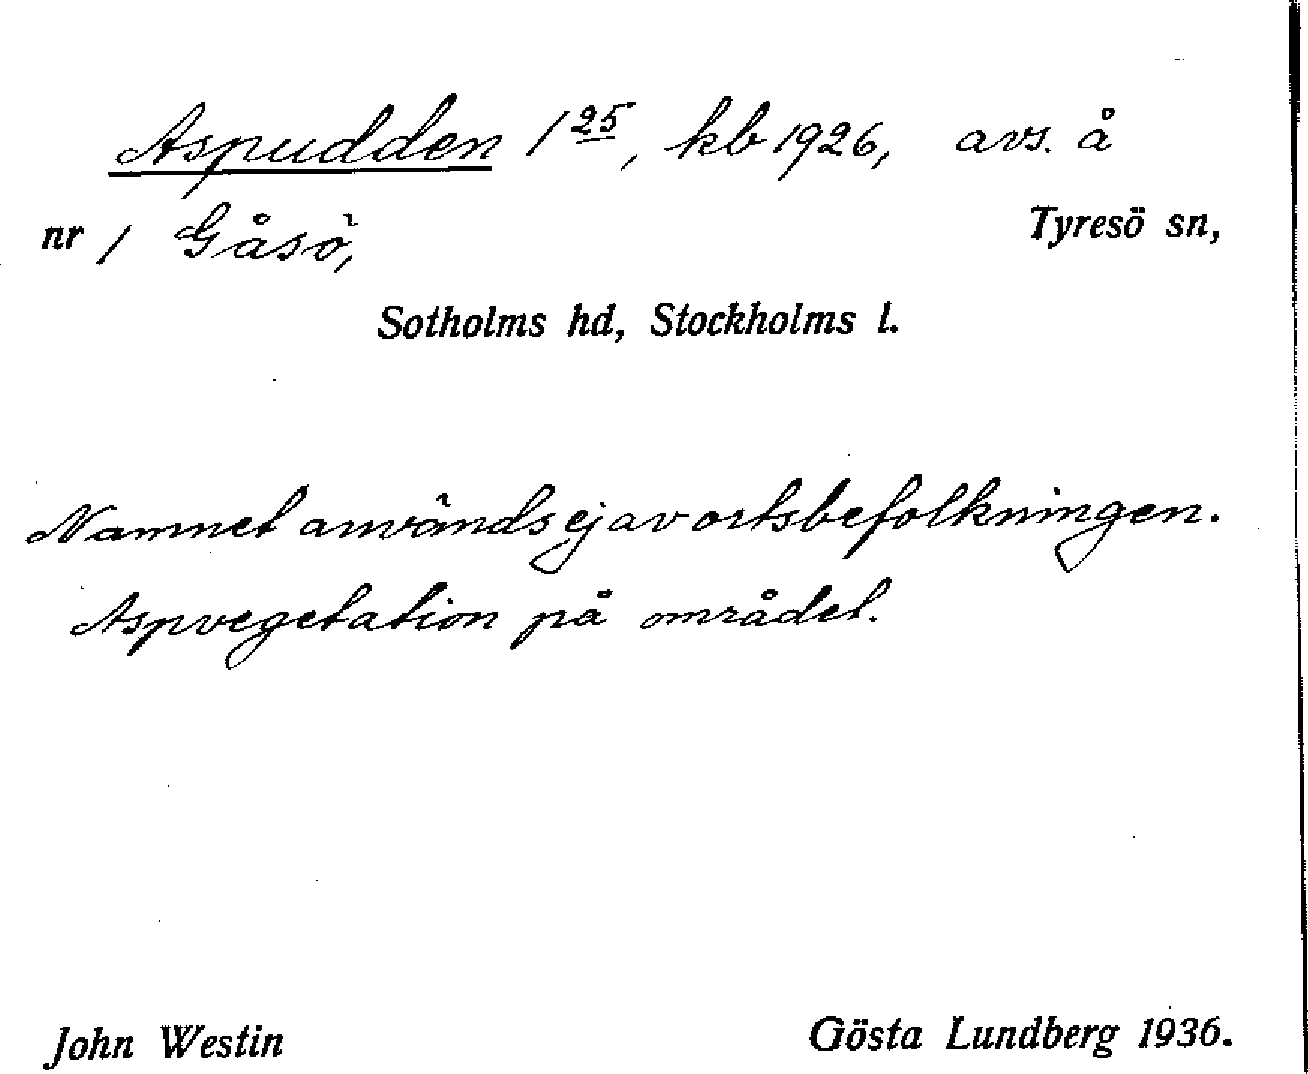 Aspudden 1 25, kb 1926, avs. å
nr 1 Gåsö, Tyresö sn,
Sotholms hd, Stockholms l.
Namnet användsejavortsbefolkningen.
Aspvegetation på området.
John Westin Gösta Lundberg 1936.